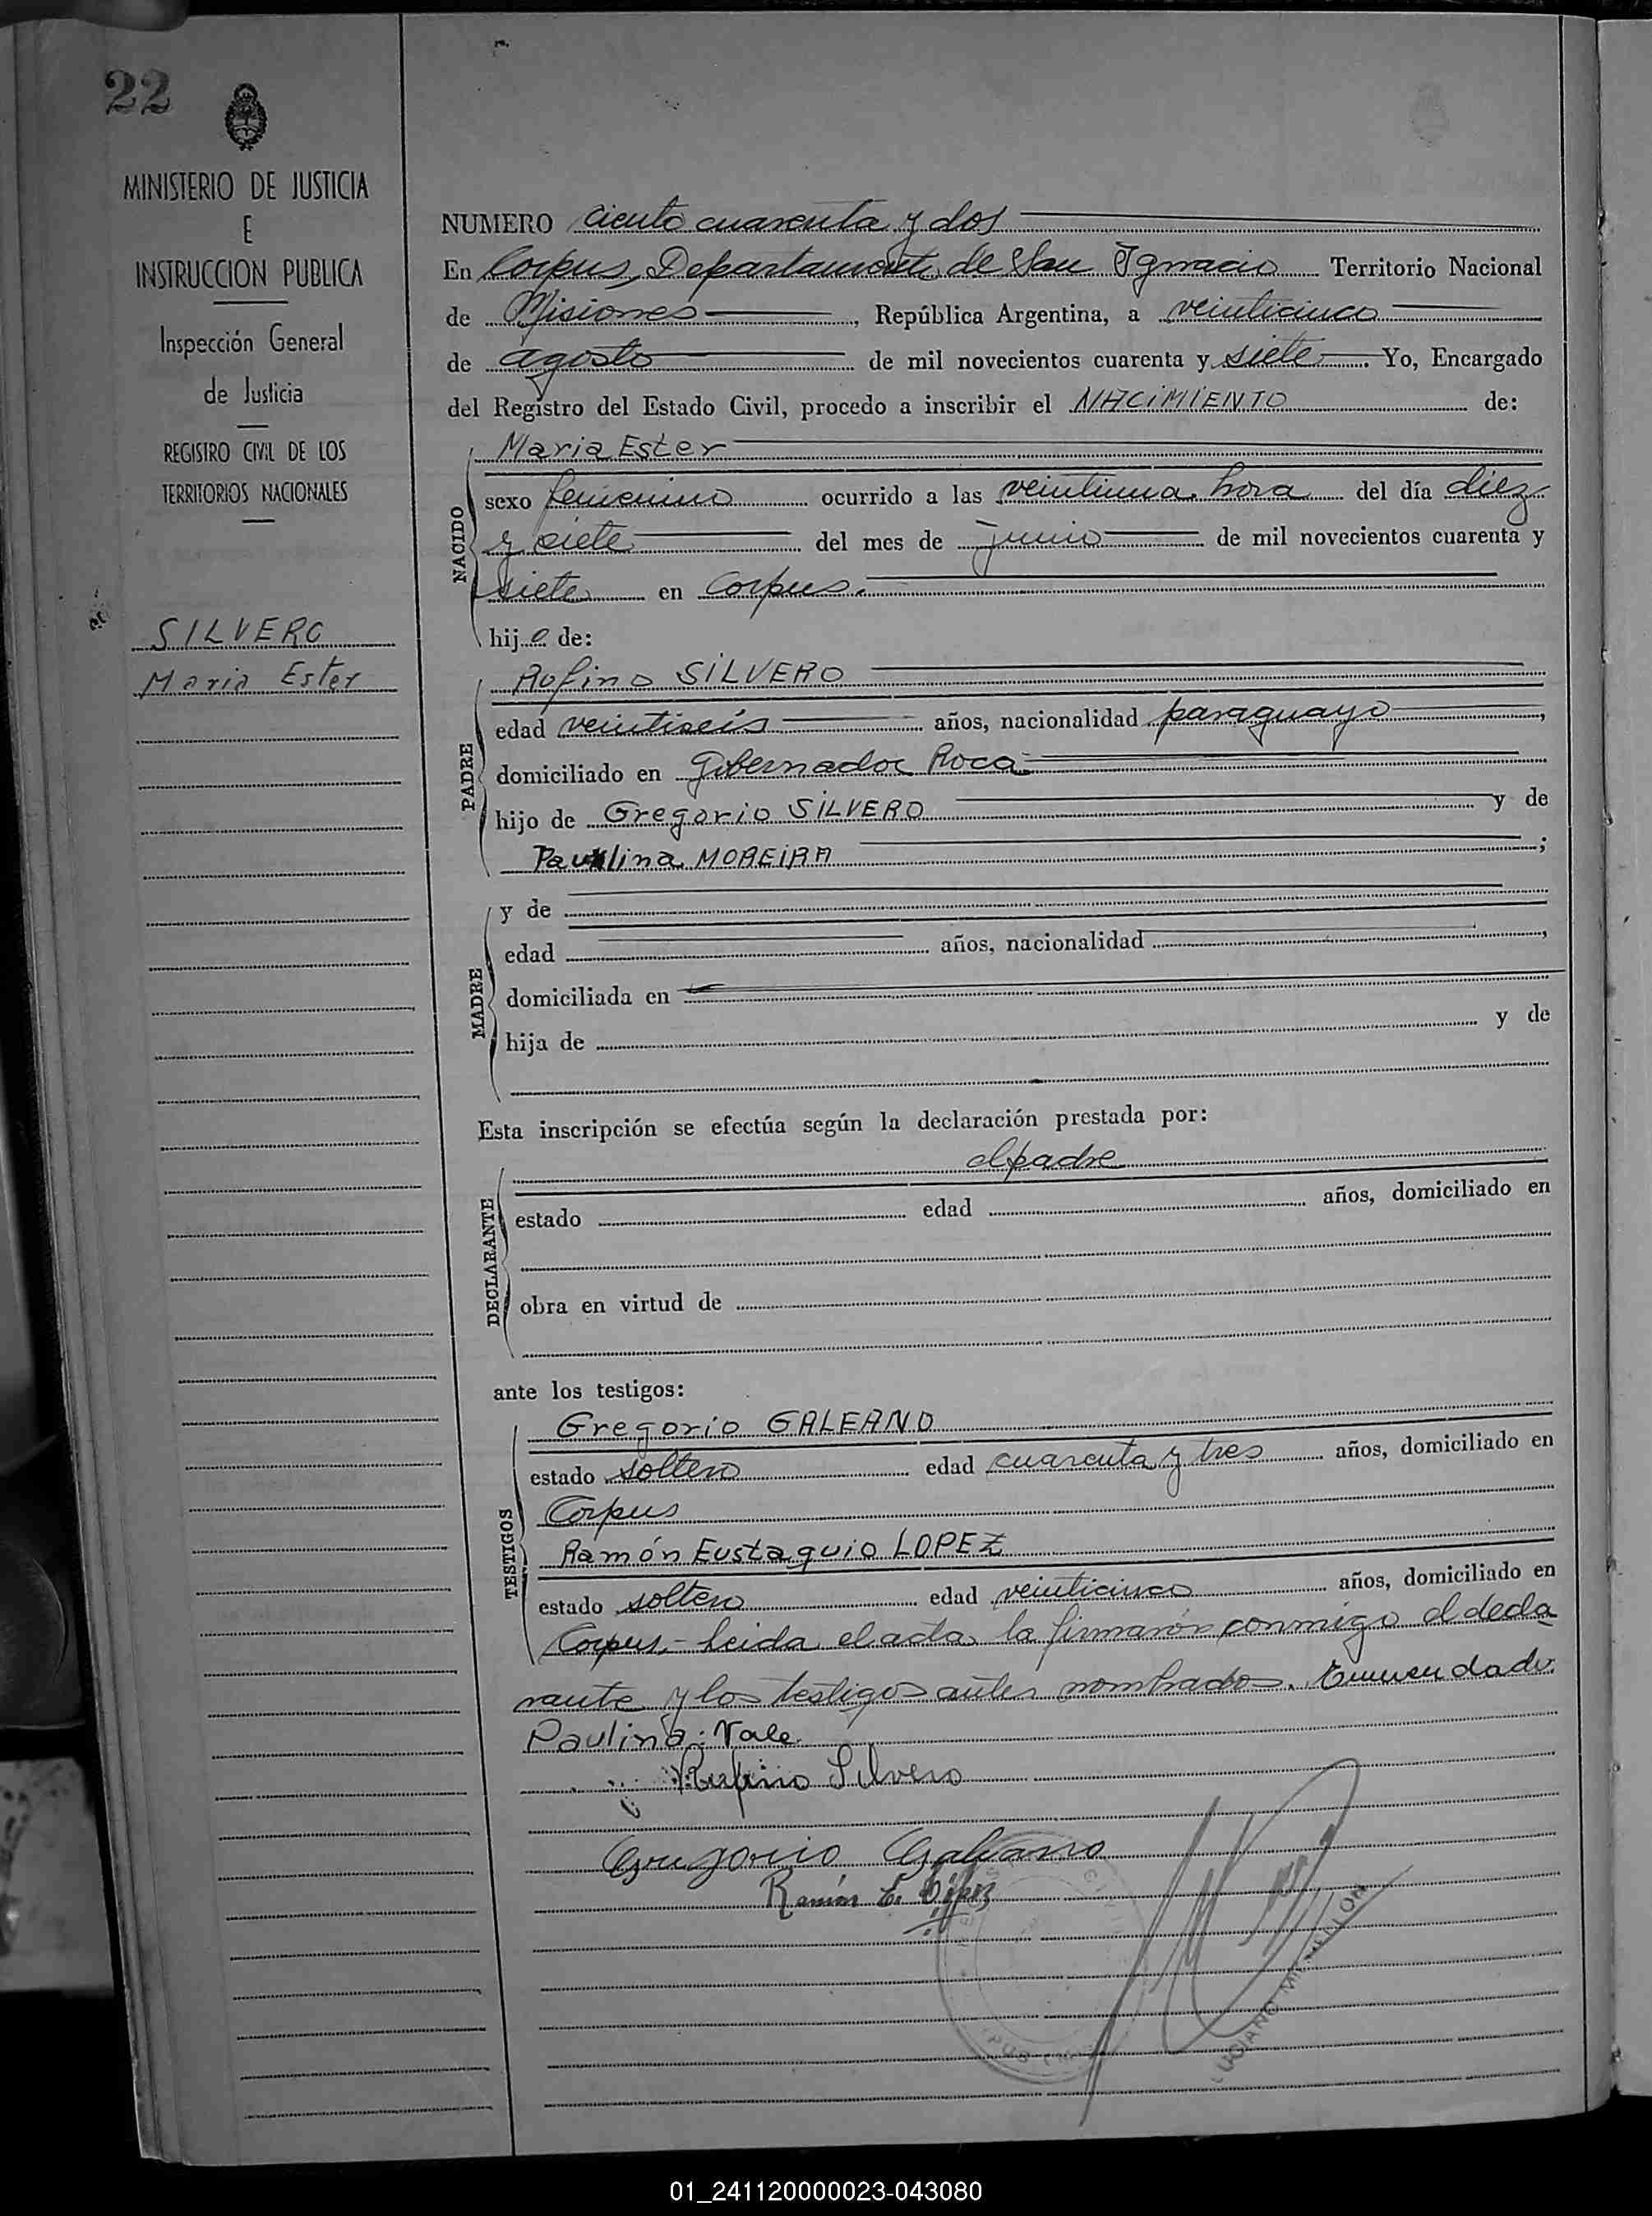 22
MINISTERIO DE JUSTICIA
E
INSTRUCCION PUBLICA
Inspección General
de Justicia
REGISTRO CIVIL DE LOS
TERRITORIOS NACIONALES
SILVERO
Maria Ester
NUMERO ciento cuarenta y dos
En Corpus, Departamento de San Ignacio Territorio Nacional
de Misiones, República Argentina, a veinticinco
de agosto de mil novecientos cuarenta y siete. Yo, Encargado
del Registro del Estado Civil, procedo a inscribir el NACIMIENTO de:
NACIDO
Maria Ester
sexo femenino ocurrido a las veintiuna hora del día diez
y siete del mes de junio de mil novecientos cuarenta y
siete en Corpus.
hija de:
PADRE
Rufino SILVERO
edad veintiseis años, nacionalidad paraguayo,
domiciliado en Gobernador Roca
hijo de Gregorio SILVERO y de
Paulina MOREIRA;
MADRE
y de
edad años, nacionalidad,
domiciliada en
hija de y de
Esta inscripción se efectúa según la declaración prestada por:
DECLARANTE
el padre
estado edad años, domiciliado en
obra en virtud de
ante los testigos:
TESTIGOS
Gregorio GALEANO
estado soltero edad cuarenta y tres años, domiciliado en
Corpus
Ramón Eustaquio LOPEZ
estado soltero edad veinticinco años, domiciliado en
Corpus.- Leida el acta, la firmaron conmigo el decla
rante y los testigos antes nombrados. Enmendado:
Paulina: Vale.
Rufino Silvero
Gregorio Galeano
Ramón E. López
01_241120000023-043080